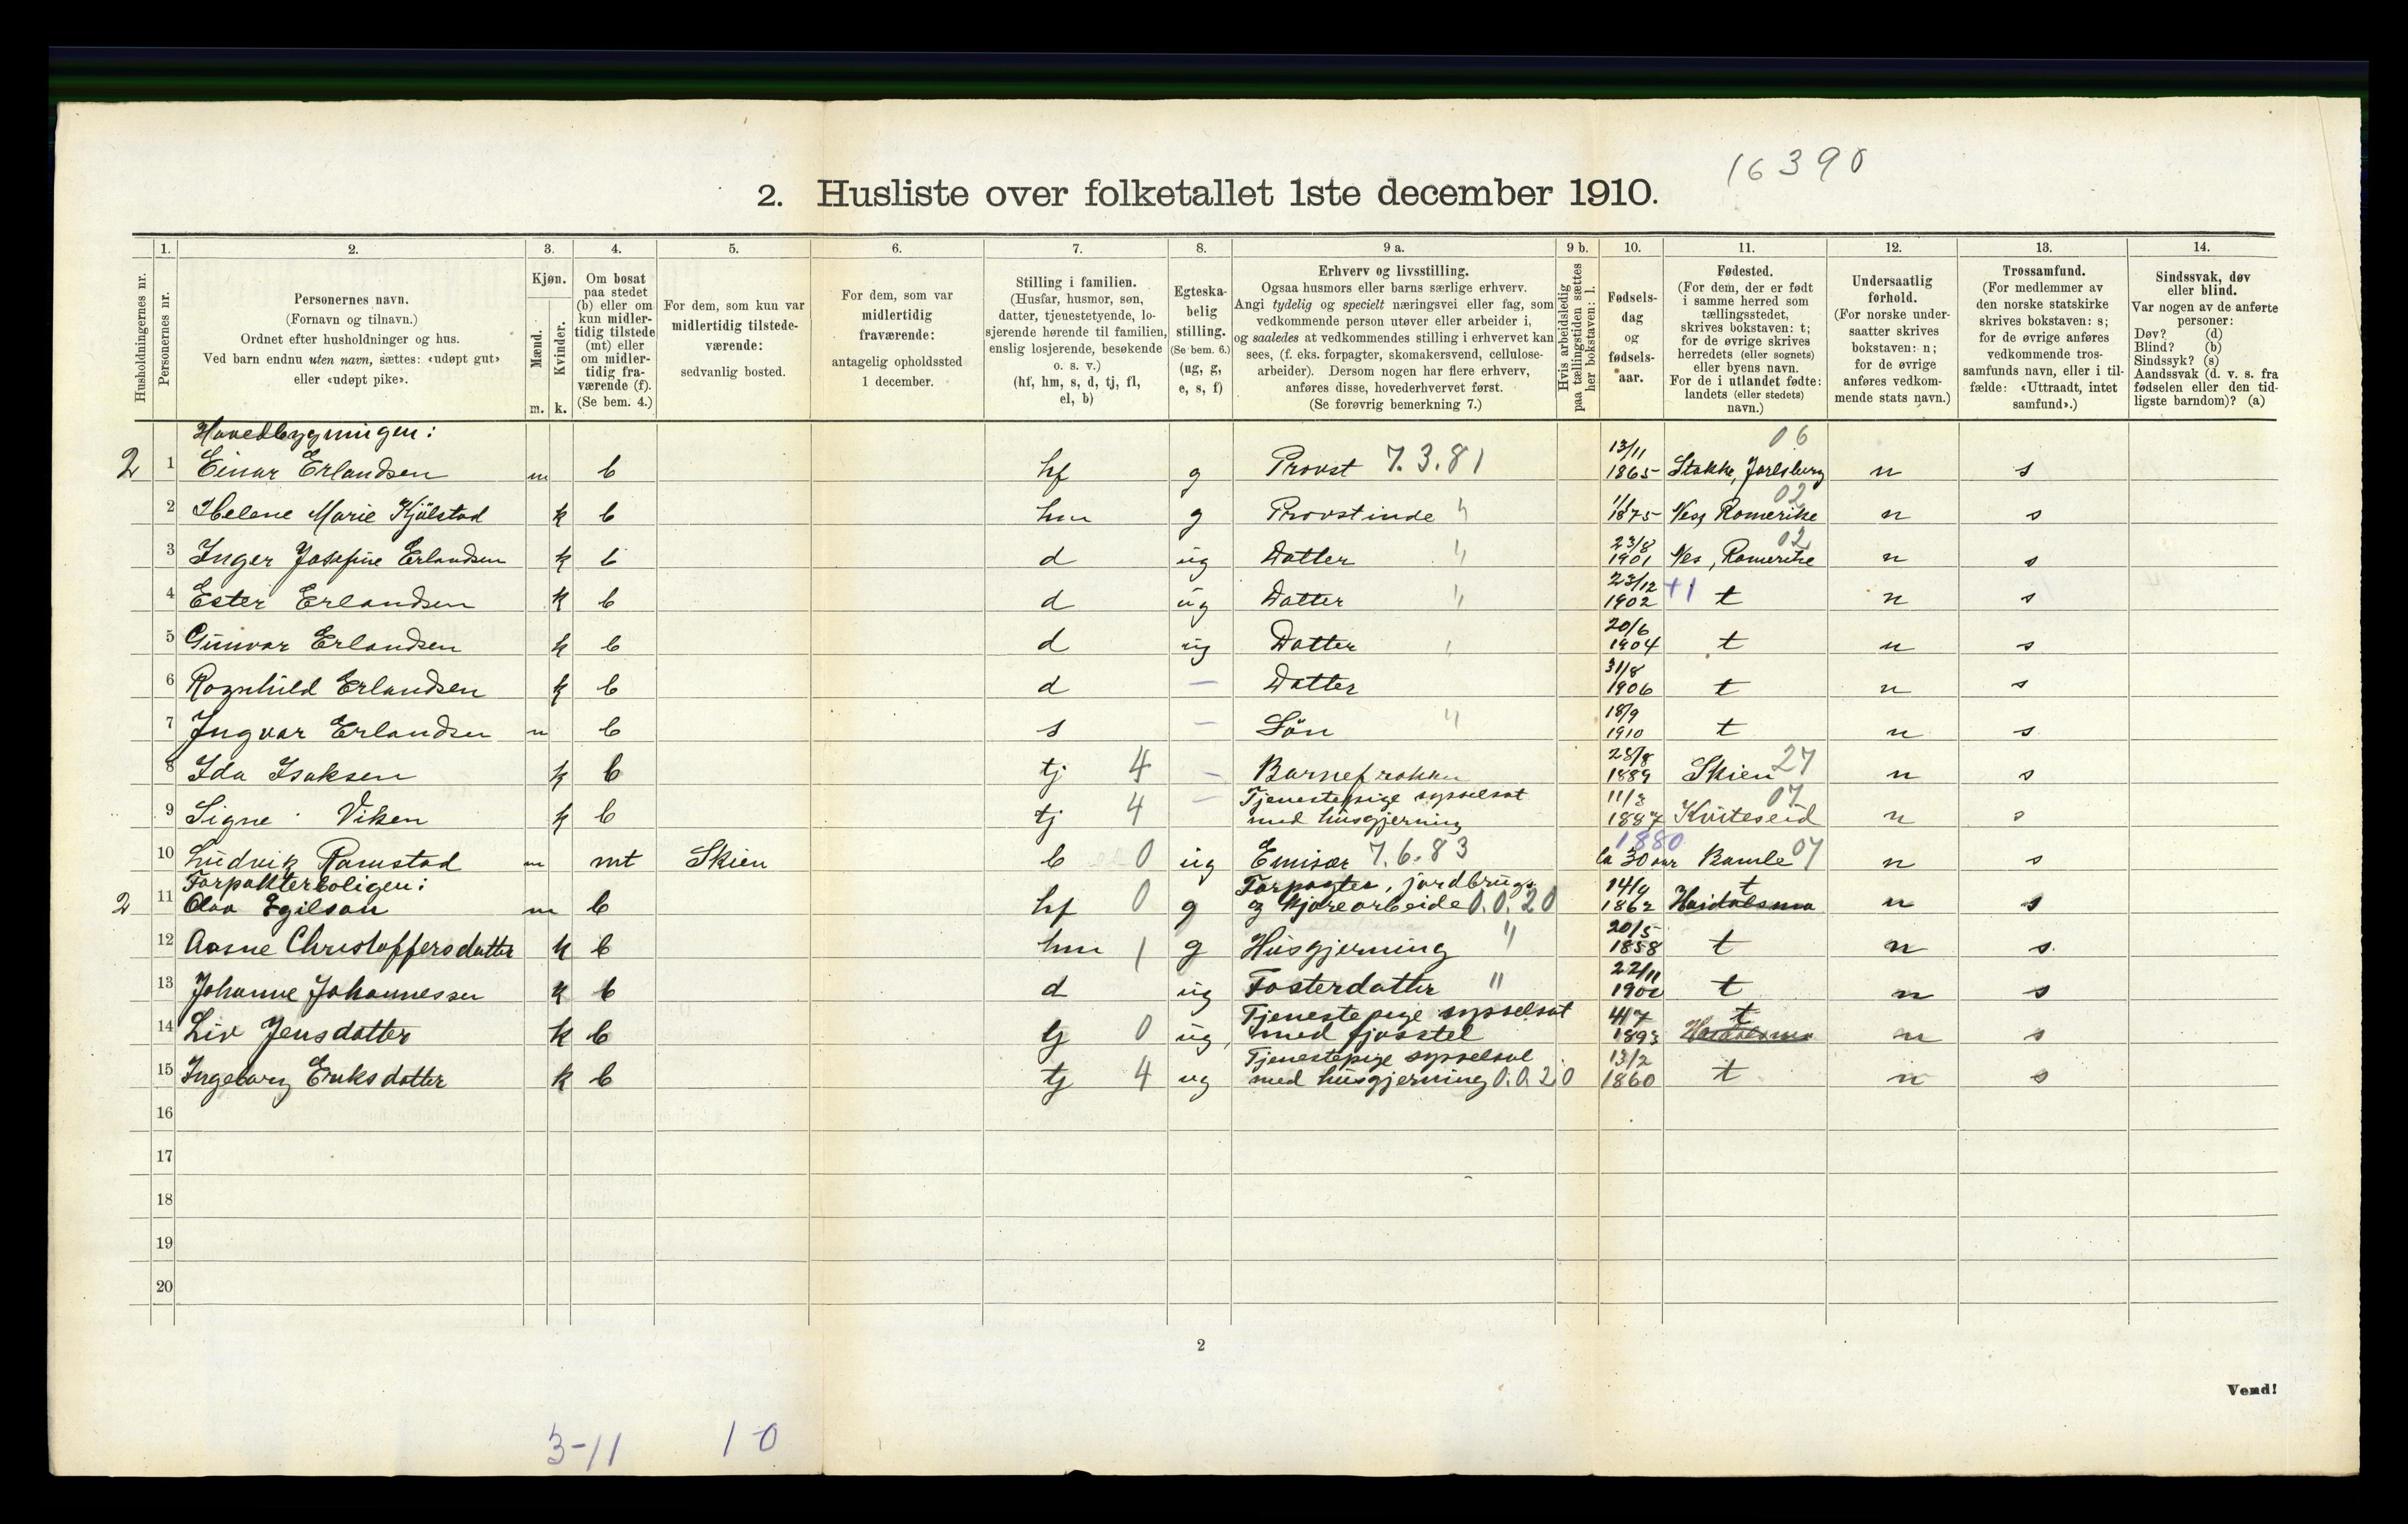 16390
2. Husliste over folketallet 1ste december 1910.
Husholdningernes nr.
1. Personernes nr.
2. Personernes navn.
(Fornavn og tilnavn.)
Ordnet efter husholdninger og hus.
Ved barn endnu uten navn, sættes: «udøpt gut»
eller «udøpt pike».
3. Kjøn.
Mænd. Kvinder.
m. k.
4. Om bosat
paa stedet
(b) eller om
kun midler-
tidig tilstede
(mt) eller
om midler-
tidig fra-
værende (f).
(Se bem. 4.)
5. For dem, som kun var
midlertidig tilstede-
værende:
sedvanlig bosted.
6. For dem, som var
midlertidig
fraværende:
antagelig opholdssted
1 december.
7. Stilling i familien.
(Husfar, husmor, søn,
datter, tjenestetyende, lo-
sjerende hørende til familien,
enslig losjerende, besøkende
o. s. v.)
(hf, hm, s, d, tj, fl,
el, b)
8. Egteska-
belig
stilling.
(Se bem. 6.)
(ug, g,
e, s, f)
9 a. Erhverv og livsstilling.
Ogsaa husmors eller barns særlige erhverv.
Angi tydelig og specielt næringsvei eller fag, som
vedkommende person utøver eller arbeider i,
og saaledes at vedkommendes stilling i erhvervet kan
sees, (f. eks. forpagter, skomakersvend, cellulose-
arbeider). Dersom nogen har flere erhverv,
anføres disse, hovederhvervet først.
(Se forøvrig bemerkning 7.)
9 b. Hvis arbeidsledig
paa tællingstiden sættes
her bokstaven: l.
10. Fødsels-
dag
og
fødsels-
aar.
11. Fødested.
(For dem, der er født
i samme herred som
tællingsstedet,
skrives bokstaven: t;
for de øvrige skrives
herredets (eller sognets)
eller byens navn.
For de i utlandet fødte:
landets (eller stedets)
navn.)
12. Undersaatlig
forhold.
(For norske under-
saatter skrives
bokstaven: n;
for de øvrige
anføres vedkom-
mende stats navn.)
13. Trossamfund.
(For medlemmer av
den norske statskirke
skrives bokstaven: s;
for de øvrige anføres
vedkommende tros-
samfunds navn, eller i til-
fælde: «Uttraadt, intet
samfund».)
14. Sindssvak, døv
eller blind.
Var nogen av de anførte
personer:
Døv? (d)
Blind? (b)
Sindssyk? (s)
Aandssvak (d. v. s. fra
fødselen eller den tid-
ligste barndom)? (a)
Hovedbygningen:
2 1 Einar Erlandsen m b hf g Provst 7.3.81 13/11 1865 Stokke, Jarlsberg 06 n s
2 Helene Marie Kjølstad k b hm g Provstinde " 1/1 1875 Nes, Romerike 02 n s
3 Inger Josefine Erlandsen k b d ug Datter " 23/8 1901 Nes, Romerike 02 n s
4 Ester Erlandsen k b d ug Datter " 23/12 1902 +1 t n s
5 Gunvor Erlandsen k b d ug Datter " 20/6 1904 t n s
6 Ragnhild Erlandsen k b d — Datter 31/8 1906 t n s
7 Ingvar Erlandsen m b s — Søn " 18/9 1910 t n s
8 Ida Isaksen k b tj 4 — Barnefrøken 23/8 1889 Skien 27 n s
9 Signe Viken k b tj 4 — Tjenestepige sysselsat
med husgjerning 11/3 1887 Kviteseid 07 n s
10 Ludvik Ramstad m mt Skien b 0 ug Emisær 7.6.83 ca 30 aar 1880 Bamle 07 n s
Forpakterboligen:
2 11 Olav Egilson m b hf 0 g Forpagter, jordbrug
og kjørearbeide 0.0.20 14/9 1862 Heidalsmo t n s
12 Aasne Christoffersdatter k b hm 1 g Husgjerning " 20/5 1858 t n s
13 Johanne Johannessen k b d ug Fosterdatter " 22/11 1900 t n s
14 Liv Jensdatter k b tj 0 ug Tjenestepige sysselsat
med fjøsstel 4/7 1893 t n s
15 Ingeborg Eriksdatter k b tj 4 ug Tjenestepige sysselsat
med husgjerning 0.0.20 13/2 1860 t n s
16
17
18
19
20
2
Vend!
3-11 10